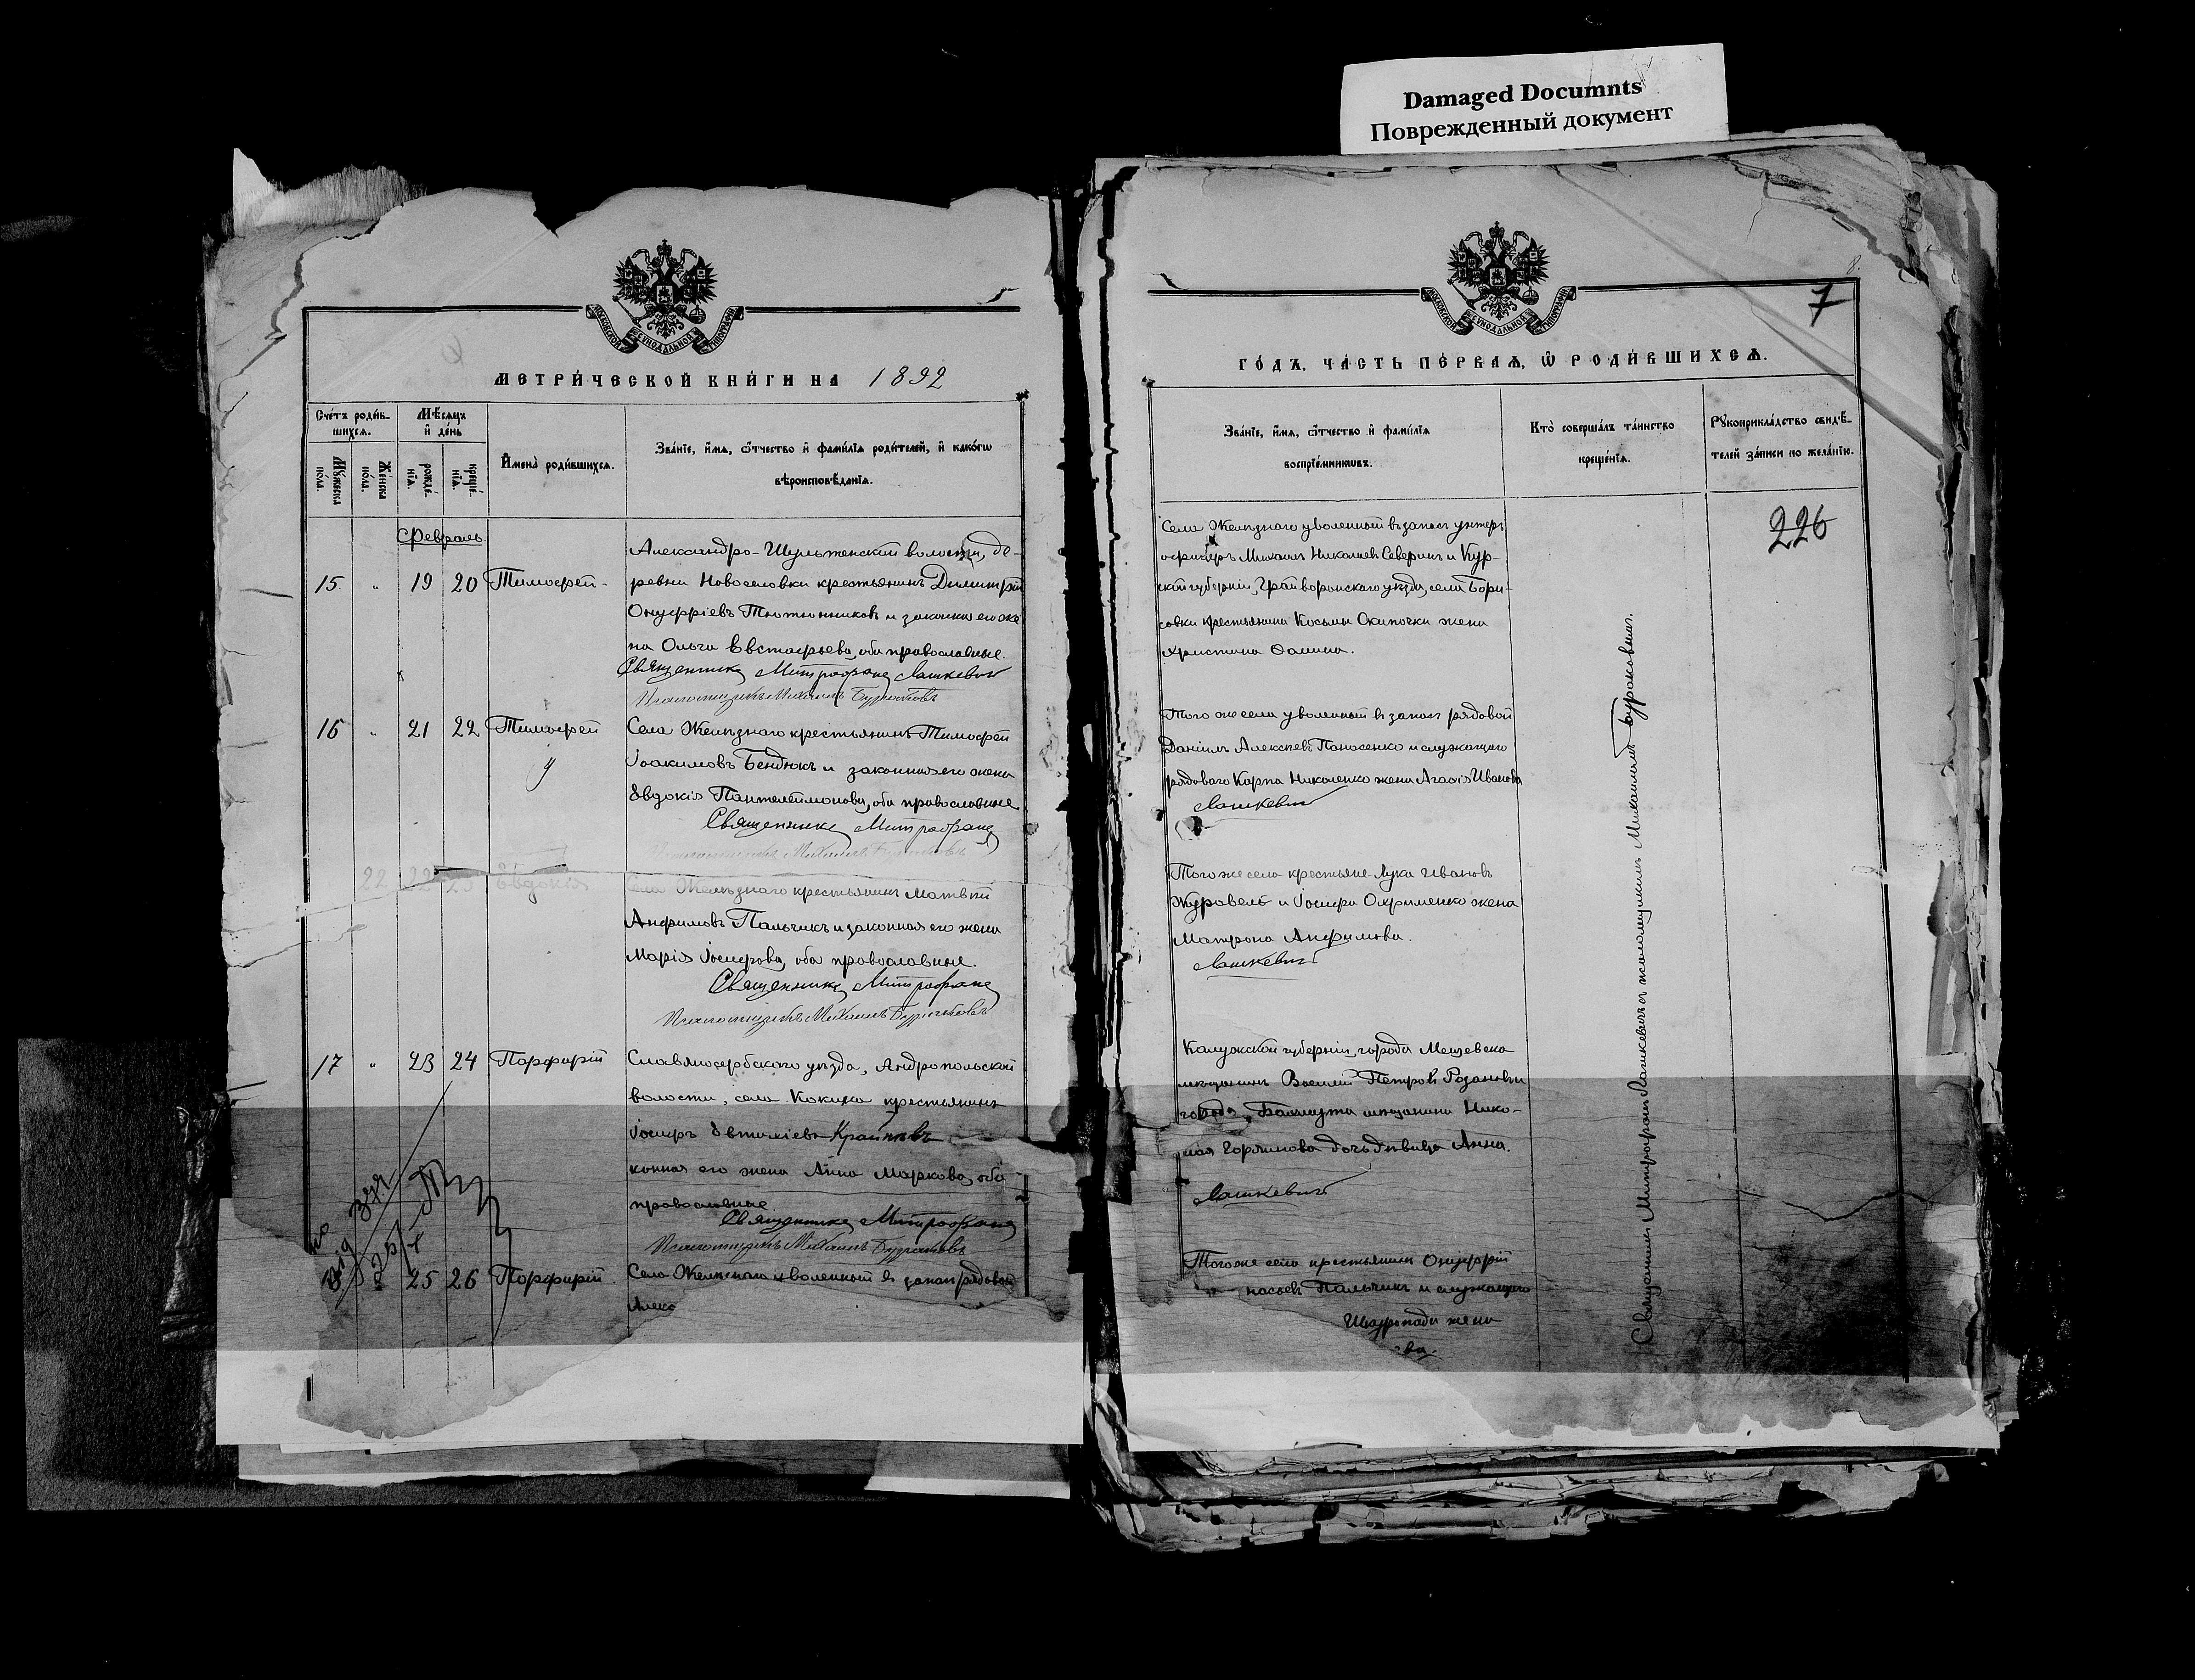 Damaged Documnts
Поврежденный документ
МОСКОВСКОЙ СѴНОДАЛЬНОЙ ТИПОГРАФІИ
МЕТРИ́ЧЕСКОЙ КНИ́ГИ НА 1892
Сче́тъ роди́в-
шихсѧ.
Мѣ́сѧцъ
и҆ де́нь
Мꙋ́жеска
по́ла.
Же́нска
по́ла.
рожде́-
нїѧ.
креще́-
нїѧ.
И҆мена̀ роди́вшихсѧ.
Зва́нїе, и҆́мѧ, ѻ҆́тчество и҆ фами́лїѧ роди́телей, и҆ како́гѡ
вѣроисповѣ́данїѧ.
Февраль
15. " 19 20 Тимофей -
Александро-Шульженской волости, де-
ревни Новоселовки крестьянинъ Димитрій
Онуфріевъ Тютюнниковъ и законная его же
на Ольга Евстафьева, оба православные.
Священникъ Митрофанъ Лашкевичъ
Псаломщикъ Михаилъ
16 " 21 22 Тимофей
Села Желѣзнаго крестьянинъ Тимофей
Іоакимовъ Бендюкъ и законная его жена
Евдокія Пантелеимонова, оба православные
Священникъ Митрофанъ
Псаломщикъ Михаилъ
22 22 23 Евдокія
Села Желѣзнаго крестьянинъ Матвѣй
Анфимовъ Пальчикъ и законная его жена
Марія Іосифова, оба православные.
Священникъ Митрофанъ
Псаломщикъ Михаилъ
17 " 23 24 Порфирій
Славяносербскаго уѣзда, Андропольской
волости, села Кокина крестьянинъ
Іосифъ Евтихіевъ
конная его жена Анна Маркова, оба
православные.
Священникъ Митрофанъ
Псаломщикъ Михаилъ
25 26 Порфирій.
Села Желѣзнаго уволенный въ запасъ рядовой
Алекс
7
8.
МОСКОВСКОЙ СѴНОДАЛЬНОЙ ТИПОГРАФІИ
ГО́ДЪ, ЧА́СТЬ ПЕ́РВАѦ, Ѡ҆ РОДИ́ВШИХСѦ.
Зва́нїе, и҆́мѧ, ѻ҆́тчество и҆ фами́лїѧ
воспрїе́мникѡвъ.
Кто̀ соверша́лъ та́инство
креще́нїѧ.
Рꙋкоприкла́дство свидѣ́-
телей за́писи по жела́нїю.
226
Села Желѣзнаго уволенный въ запасъ унтеръ
офицеръ Михаилъ Николаевъ Северинъ и Кур-
ской губерніи, Грайворонскаго уѣзда, села Бори-
совки крестьянина Косьмы жена
Христина Ѳомина.
Того же села уволенный въ запасъ рядовой
Даніилъ Алексѣевъ Панасенко и служащаго
рядоваго Карпа Николенко жена Агаѳія Иванова
Лашкевичъ
Того же села крестьяне Лука Ивановъ
Журавель и Іосифа Охрименко жена
Матрона Анфимова.
Лашкевичъ
Калужской губерніи, города Мещевска
мѣщанинъ Василій Петровъ Розановъ и
города Бахмута мѣщанина Нико-
лая Горяинова дочь дѣвица Анна.
Лашкевичъ
Того же села крестьянинъ Онуфрій
насьевъ Пальчикъ и служащаго
жена
ва.
Священникъ Митрофанъ Лашкевичъ съ псаломщикомъ Михаиломъ